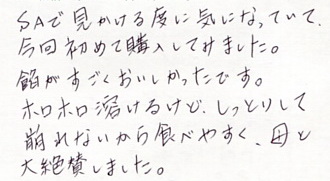 SAで見かける度に気になっていて、
今回初めて購入してみました。
餡がすごくおいしかったです。
ホロホロ溶けるけど、しっとりして
崩れないから食べやすく、母と
大絶賛しました。